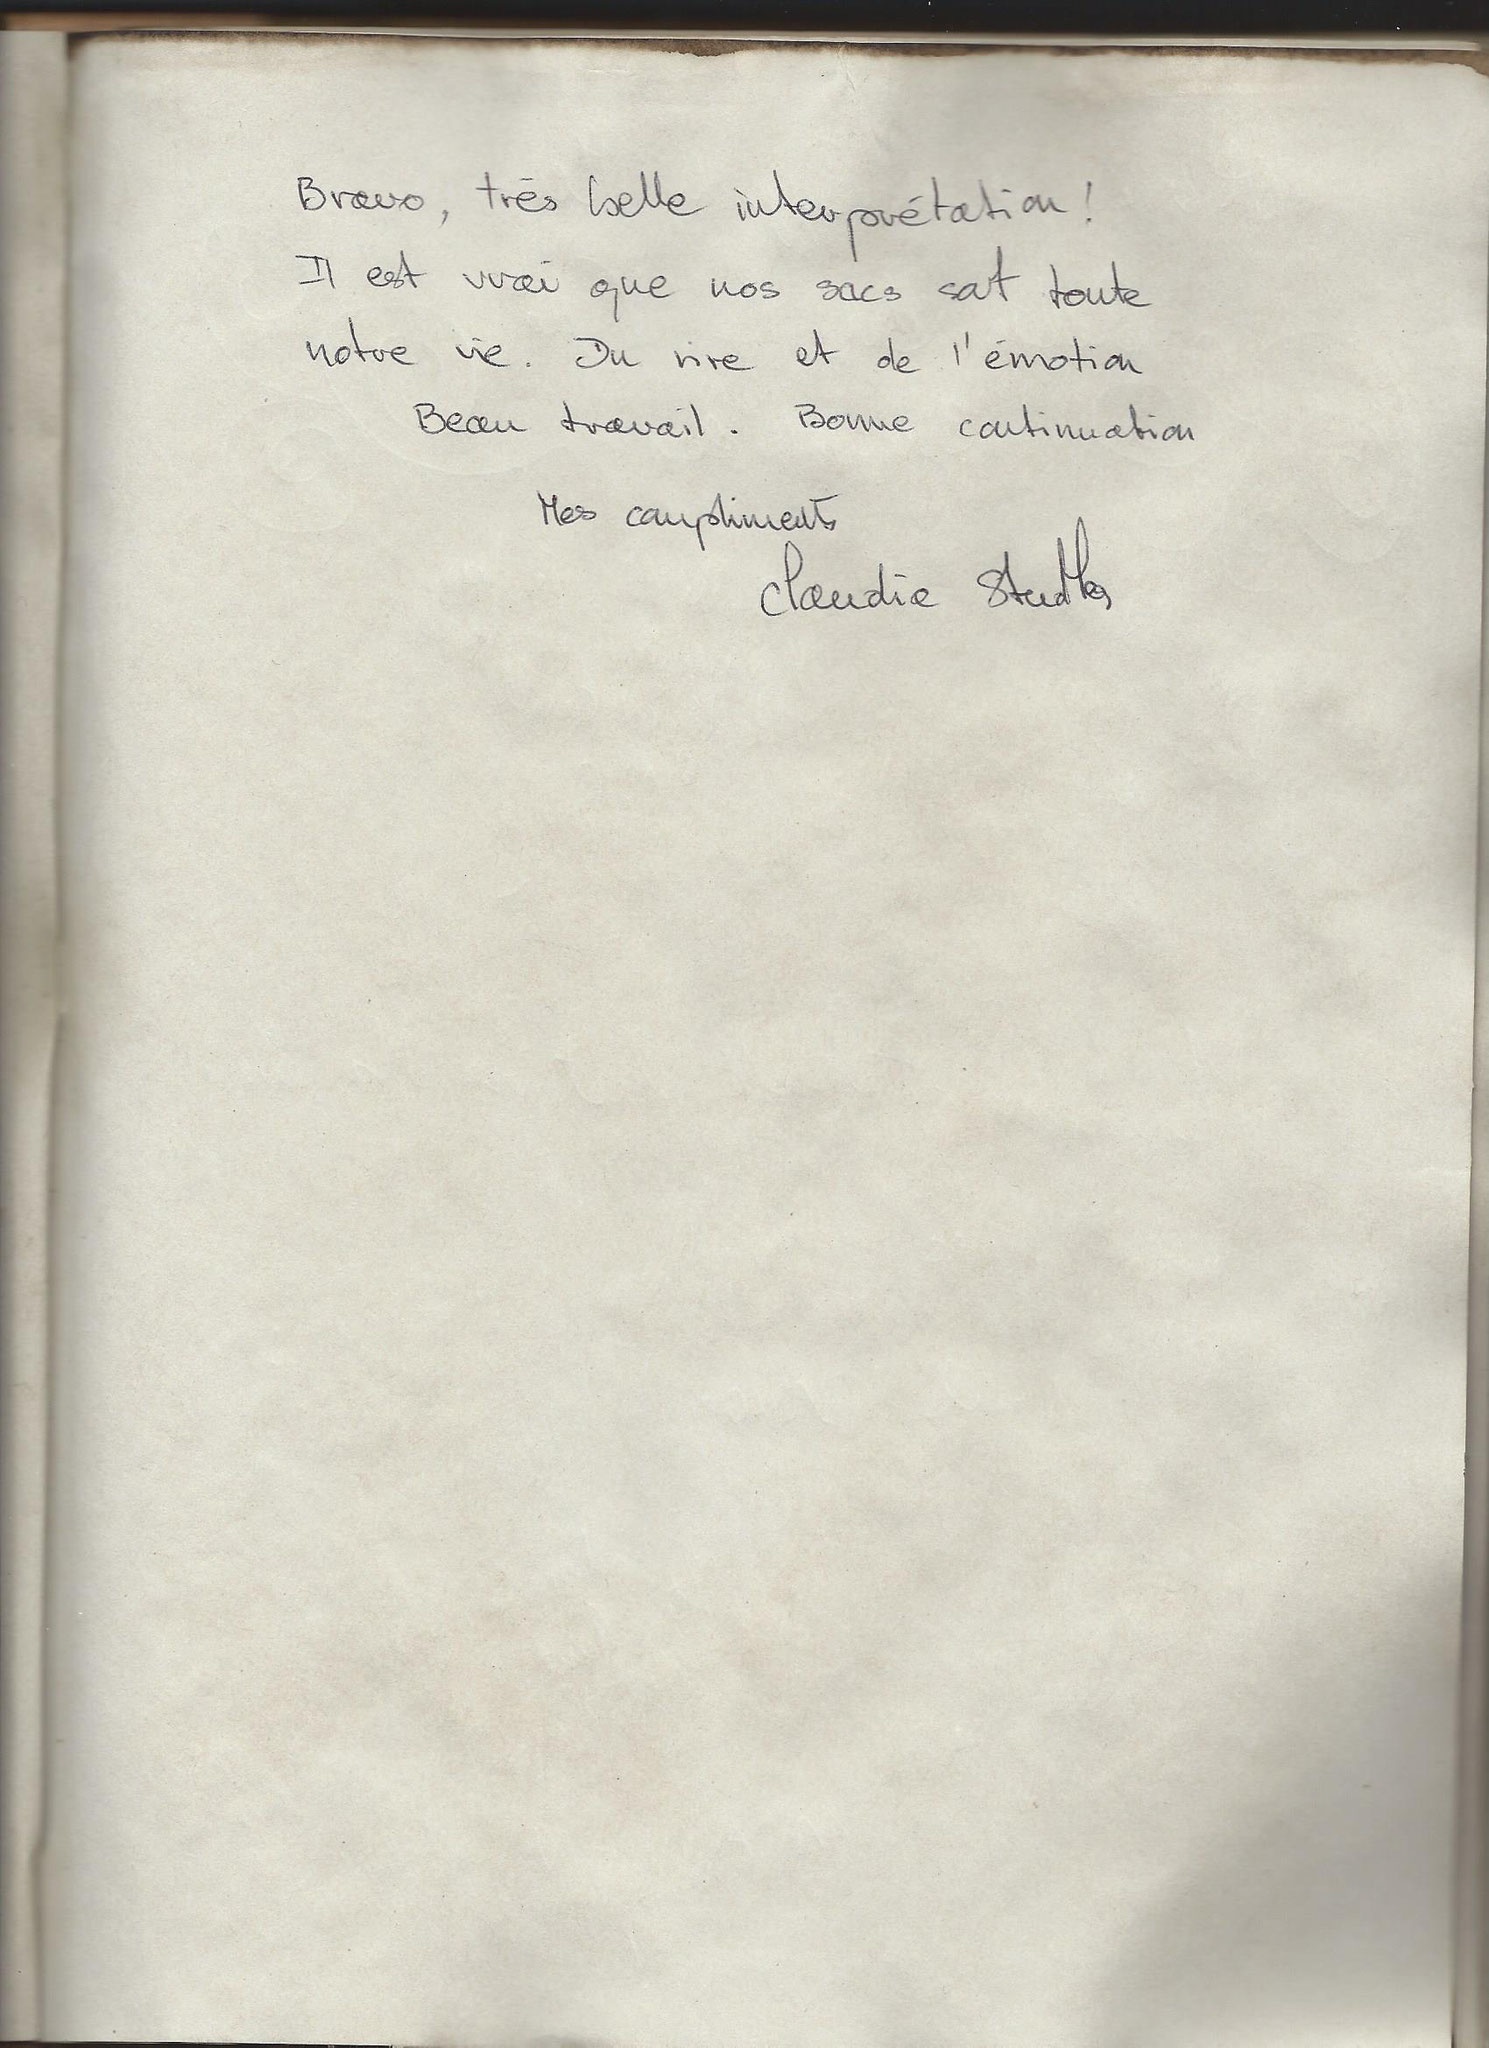 Bravo, très belle interprétation!
Il est vrai que nos sacs sont toute
notre vie. Du rire et de l'émotion
Beau travail. Bonne continuation
Mes compliments
Claudie